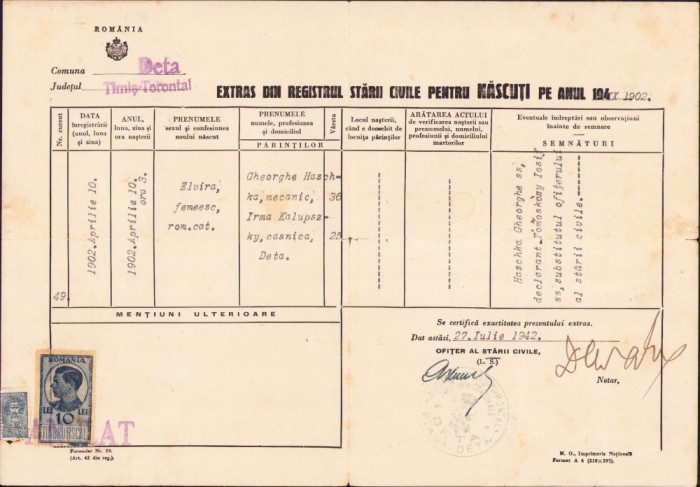 ROMÂNIA
Comuna Deta
Județul Timiș-Torontal
EXTRAS DIN REGISTRUL STĂRII CIVILE PENTRU NĂSCUȚI PE ANUL 194 1902.
Nr. curent
DATA
înregistrării
(anul, luna
și ziua)
ANUL,
luna, ziua și
ora nașterii
PRENUMELE
sexul și confesiunea
noului născut
PRENUMELE
numele, profesiunea
și domiciliul
Vârsta
PĂRINȚILOR
Locul nașterii,
când e deosebit de
locuința părinților
ARĂTAREA ACTULUI
de verificarea nașterii sau
prenumele, numele,
profesiunii și domiciliului
martorilor
Eventuale îndreptări sau observațiuni
înainte de semnare
SEMNĂTURI
49.
1902.Aprilie 10.
1902.Aprilie 10.
oră 3.
Elvira,
femeesc,
rom.cat.
Gheorghe Hasch-
ka, mecanic, 36
Irma Kalupsz-
ky, casnica, 25
Deta.
Haschka Gheorghe ss,
declarant. Tomoskozy Iosif
ss, substitutul ofițerului
al stării civile.
MENȚIUNI ULTERIOARE
Se certifică exactitatea prezentului extras.
Dat astăzi, 27.Iulie 1942.
OFIȚER AL STĂRII CIVILE,
(L. S.)
Notar,
ROMANIA
LEI 10 LEI
TIMBRU FISCAL
ANULAT
DETA
Formular Nr. 29.
(Art. 43 din reg.)
M. O., Imprimeria Națională
Format A 4 (210×297).